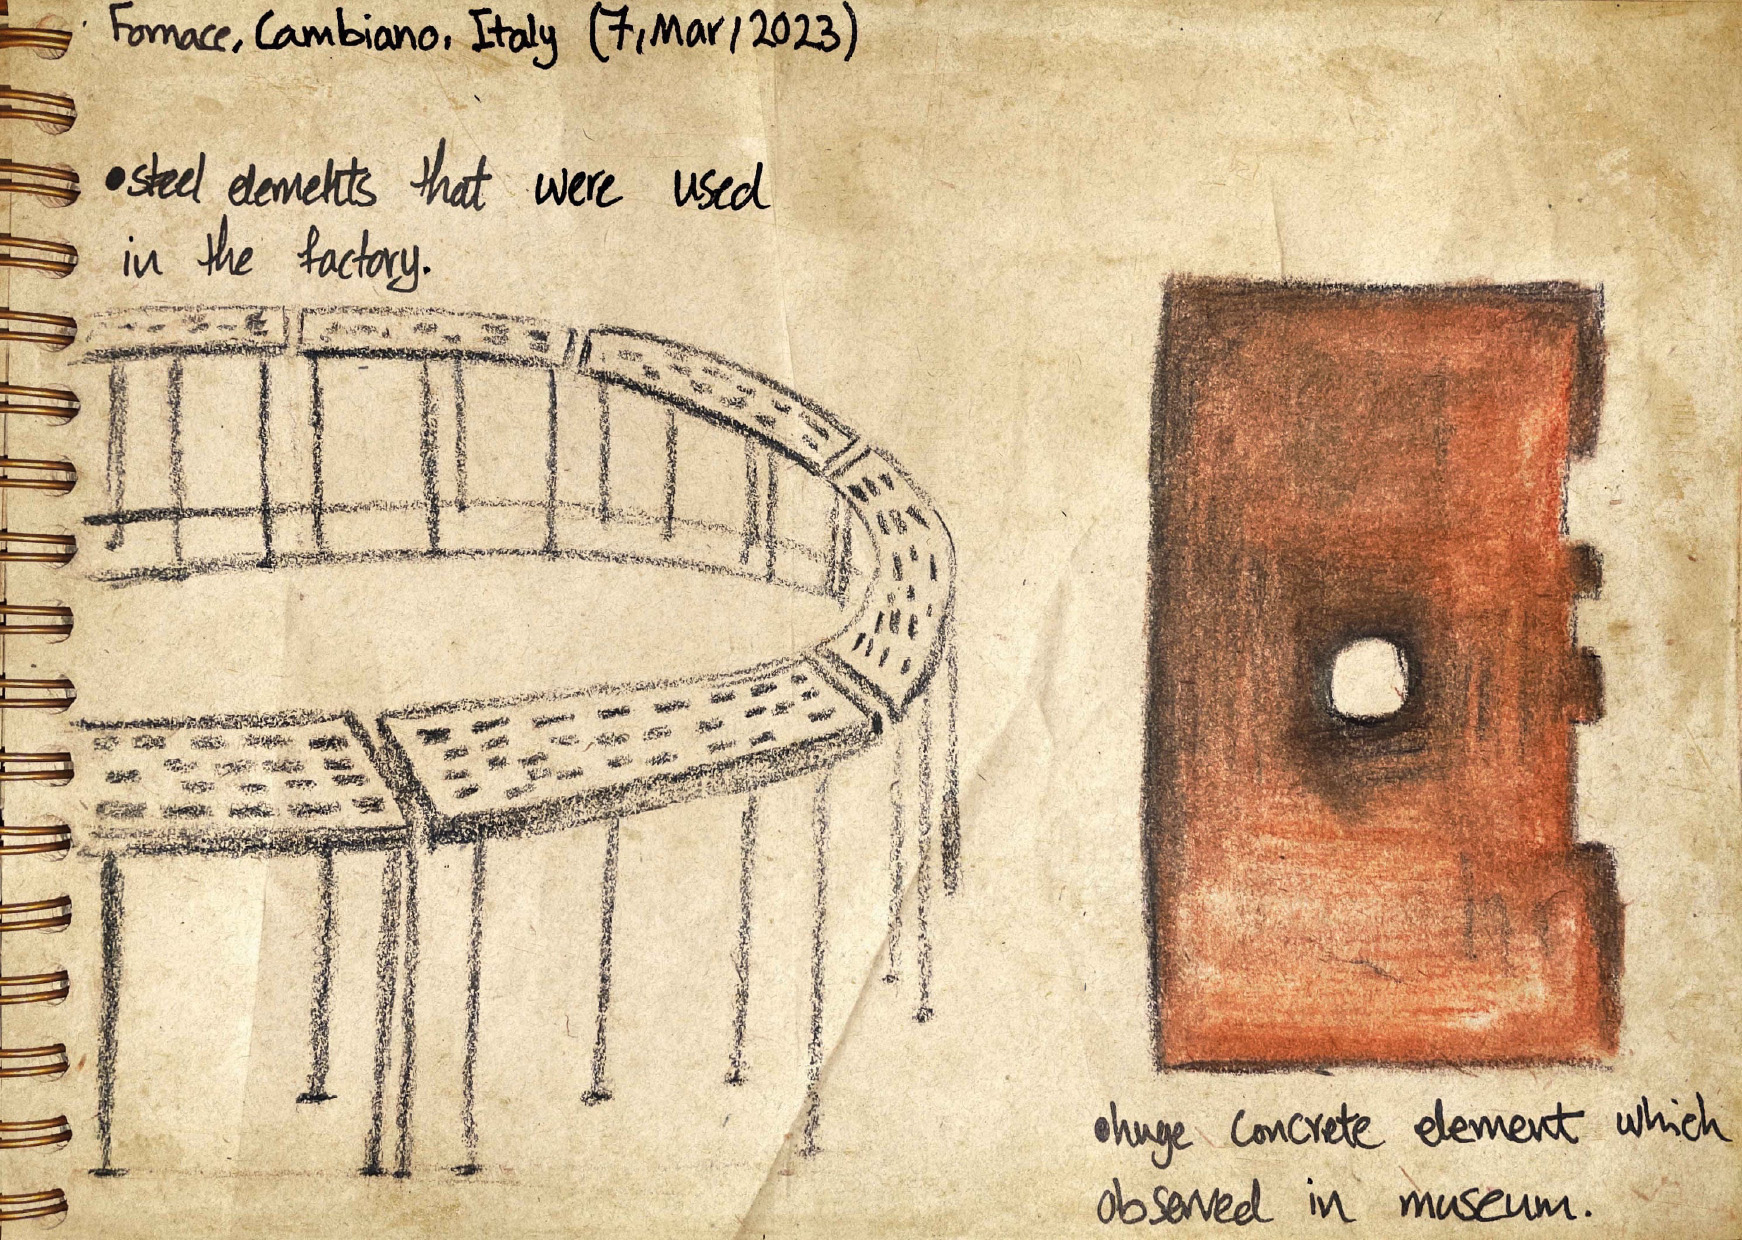 Fornace, Cambiano, Italy (7, Mar / 2023)
•steel elements that were used
in the factory.
•huge concrete element which
observed in museum.